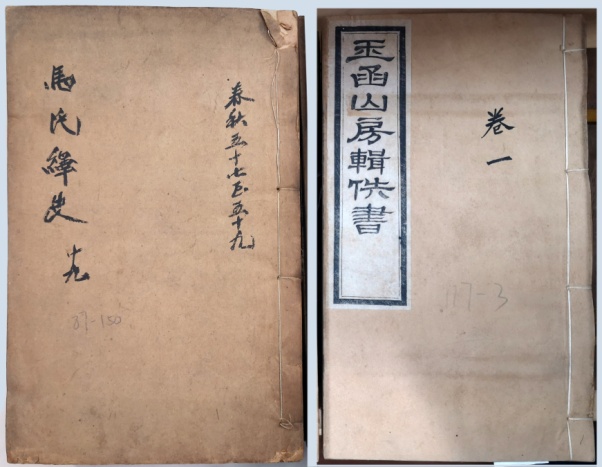 馬氏繹史
十九
春秋五十七至五十九
37-150
玉函山房輯佚書
卷一
117-3